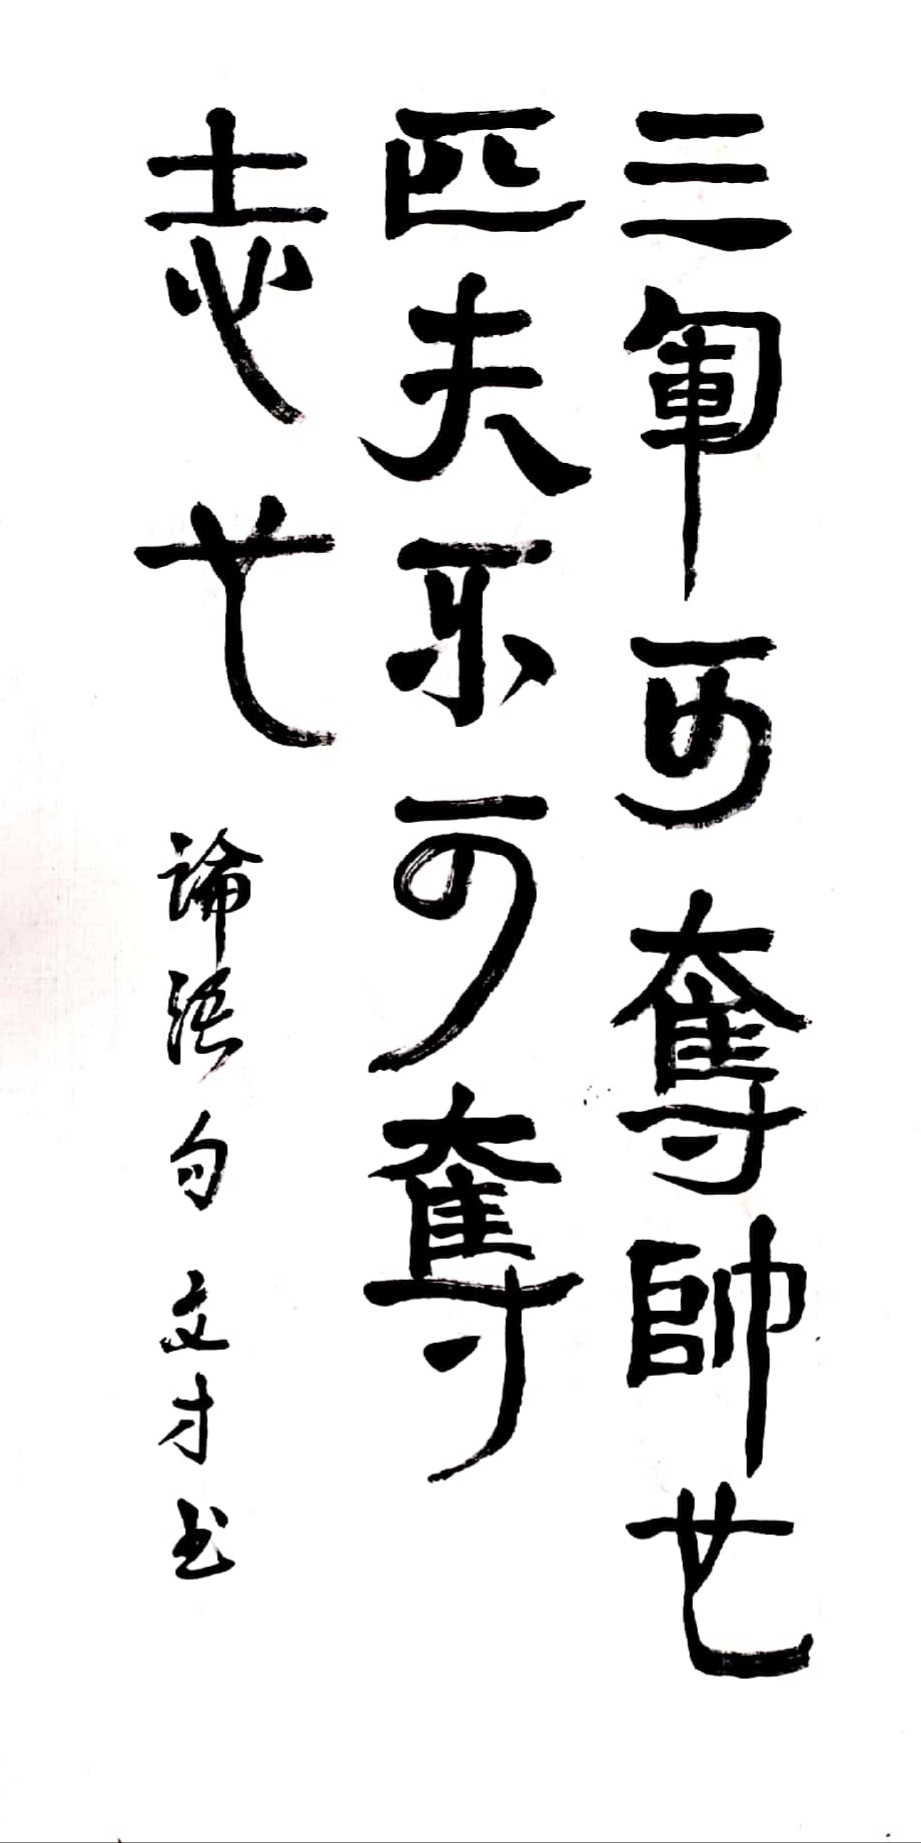 三軍可奪帥也
匹夫不可奪
志也
論語句 文才书